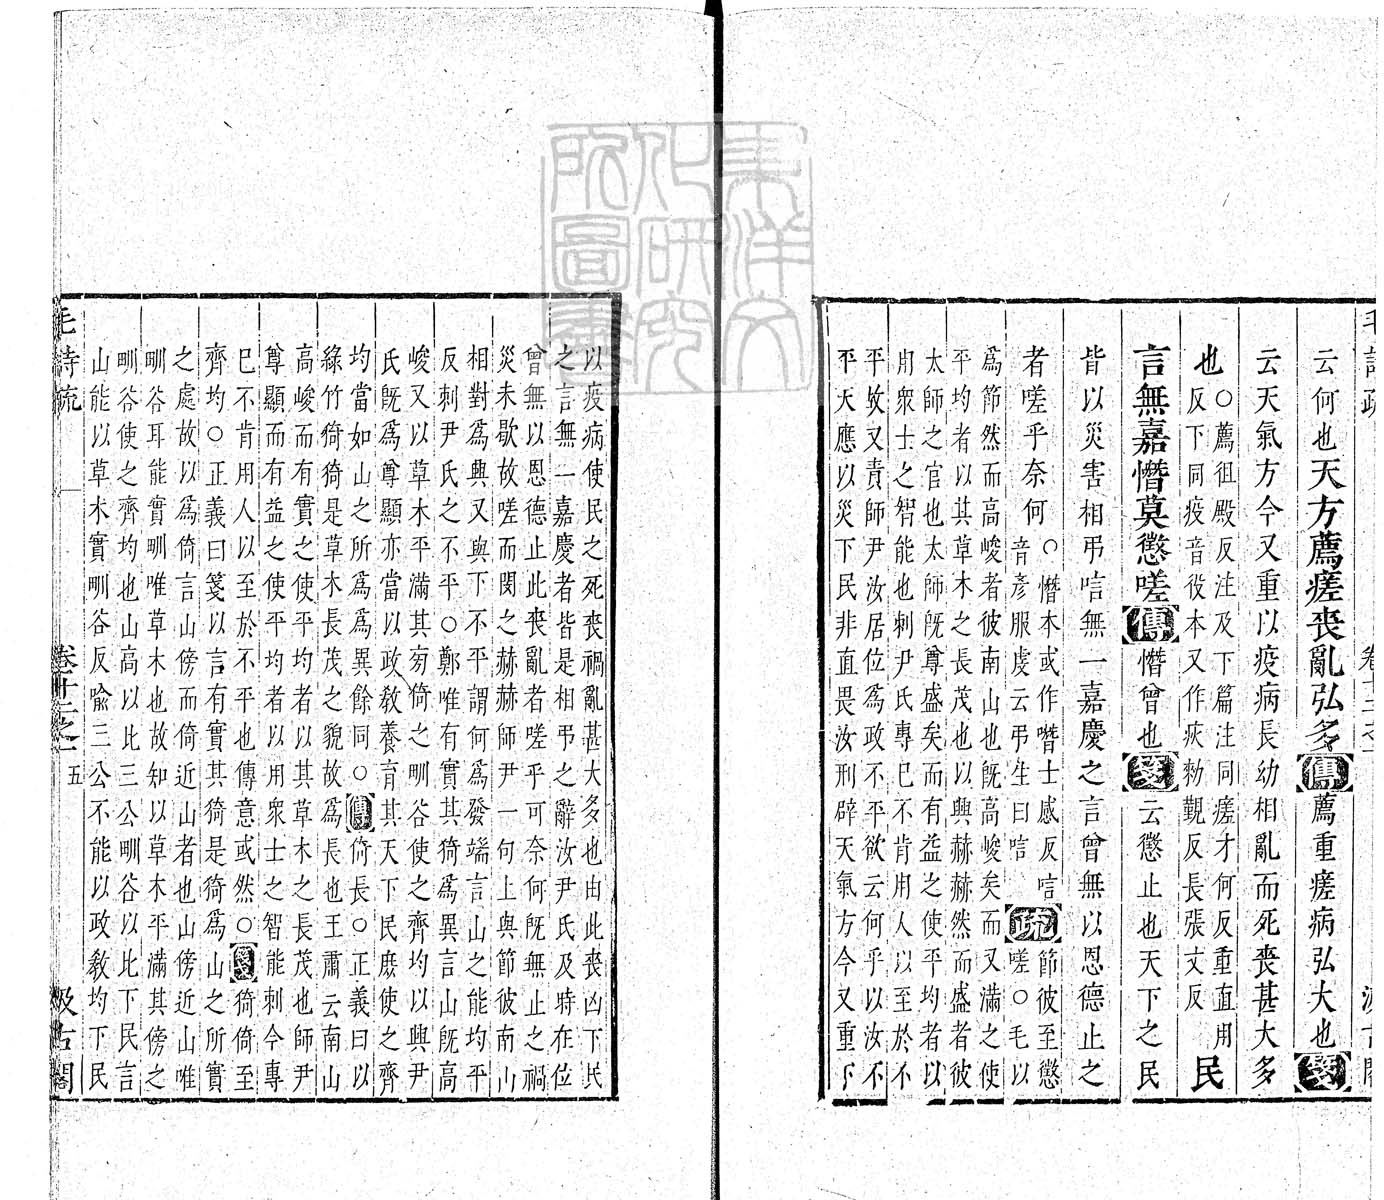 云何也天方薦瘥喪亂弘多傳薦重瘥病弘大也箋
云天氣方今又重以疫病長幼相亂而死喪甚大多
也○薦徂殿反注及下篇注同瘥才何反重直用
反下同疫音役本又作疢勑覲反長張丈反
民
言無嘉憯莫懲嗟傳憯曾也箋云懲止也天下之民
皆以災害相弔唁無一嘉慶之言曾無以恩德止之
者嗟乎奈何
○憯本或作噆士感反唁
音彥服虔云弔生曰唁
疏
節彼至懲
嗟○毛以
爲節然而高峻者彼南山也旣高峻矣而又滿之使
平均者以其草木之長茂也以興赫赫然而盛者彼
太師之官也太師旣尊盛矣而有益之使平均者以
用衆士之智能也刺尹氏專巳不肯用人以至於不
平故又責師尹汝居位爲政不平欲云何乎以汝不
平天應以災下民非直畏汝刑辟天氣方今又重下
以疫病使民之死喪禍亂甚大多也由此喪凶下民
之言無一嘉慶者皆是相弔之辭汝尹氏及時在位
曾無以恩德止此喪亂者嗟乎可奈何旣無止之禍
災未歇故嗟而閔之赫赫師尹一句上與節彼南山
相對爲興又與下不平謂何爲發端言山之能均平
反刺尹氏之不平○鄭唯有實其猗爲異言山旣高
峻又以草木平滿其旁倚之畎谷使之齊均以興尹
氏旣爲尊顯亦當以政敎養育其天下民庶使之齊
均當如山之所爲爲異餘同○傳倚長○正義曰以
綠竹猗猗是草木長茂之貌故爲長也王肅云南山
高峻而有實之使平均者以其草木之長茂也師尹
尊顯而有益之使平均者以用衆士之智能刺今專
巳不肯用人以至於不平也傳意或然○箋猗倚至
齊均○正義曰箋以言有實其猗是猗爲山之所實
之處故以爲倚言山傍而倚近山者也山傍近山唯
畎谷耳能實畎唯草木也故知以草木平滿其傍之
畎谷使之齊均也山高以比三公畎谷以比下民言
山能以草木實畎谷反喻三公不能以政敎均下民
毛詩疏
卷十二之一
五
汲古閣
東洋文
化研究
所圖書